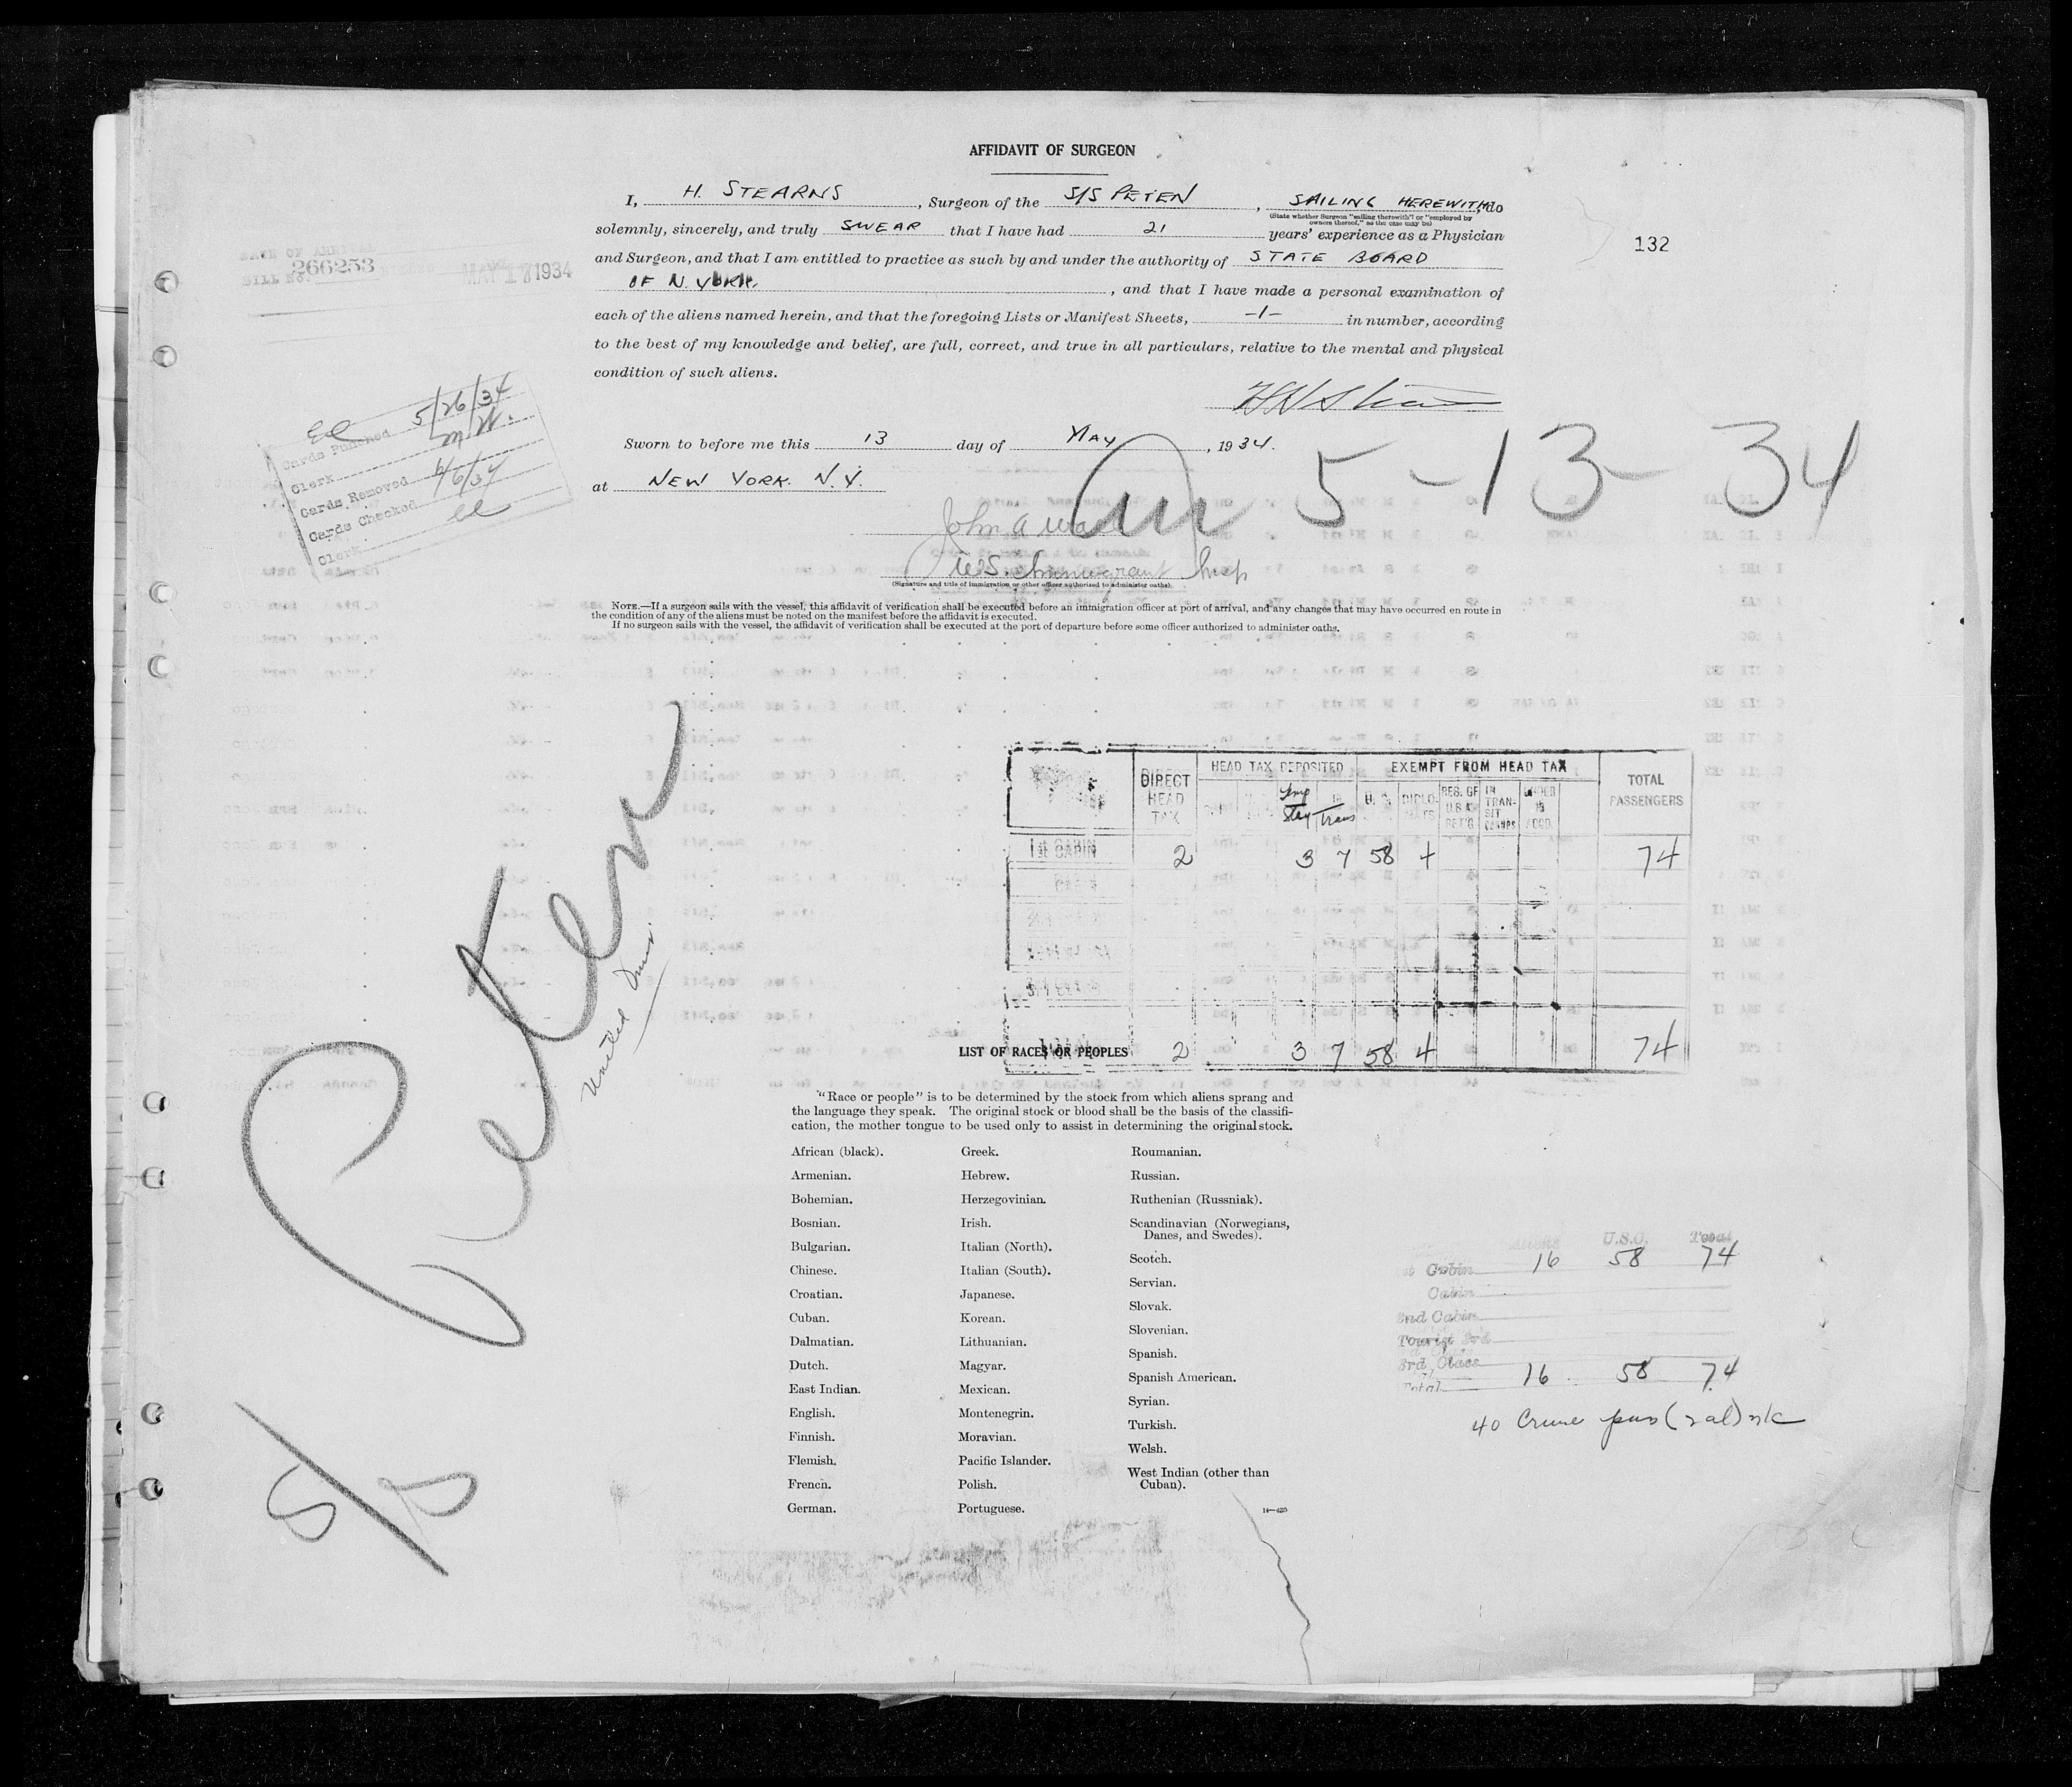 AFFIDAVIT OF SURGEON
I, H. STEARNS, Surgeon of the S/S PETEN, SAILING HEREWITH, do
(State whether Surgeon "sailing therewith" or "employed by
owners thereof," as the case may be)
solemnly, sincerely, and truly SWEAR that I have had 21 years' experience as a Physician
132
and Surgeon, and that I am entitled to practice as such by and under the authority of STATE BOARD
OF N. YORK., and that I have made a personal examination of
BILL No. 266253 MAY 17 1934
each of the aliens named herein, and that the foregoing Lists or Manifest Sheets, -1- in number, according
to the best of my knowledge and belief, are full, correct, and true in all particulars, relative to the mental and physical
condition of such aliens.
Cards Punched 5/26/34
Clerk M.W.
Cards Removed
Cards Checked
Clerk
Sworn to before me this 13 day of MAY, 1934.
at NEW YORK. N.Y.
5-13-34
John A
U.S. Immigrant Insp
(Signature and title of immigration or other officer authorized to administer oaths)
NOTE.—If a surgeon sails with the vessel, this affidavit of verification shall be executed before an immigration officer at port of arrival, and any changes that may have occurred en route in
the condition of any of the aliens must be noted on the manifest before the affidavit is executed.
If no surgeon sails with the vessel, the affidavit of verification shall be executed at the port of departure before some officer authorized to administer oaths.
S/S Peten
United
DIRECT HEAD TAX
HEAD TAX DEPOSITED
EXEMPT FROM HEAD TAX
TOTAL PASSENGERS
Tmp Stay In Trans U.S. DIPLOMATS RES. OF U.S.A. RET'G IN TRANSIT UNDER 16
1st CABIN 2 3 7 58 4 74
2 3 7 58 4 74
LIST OF RACES OR PEOPLES
"Race or people" is to be determined by the stock from which aliens sprang and
the language they speak. The original stock or blood shall be the basis of the classifi-
cation, the mother tongue to be used only to assist in determining the original stock.
African (black).
Armenian.
Bohemian.
Bosnian.
Bulgarian.
Chinese.
Croatian.
Cuban.
Dalmatian.
Dutch.
East Indian.
English.
Finnish.
Flemish.
French.
German.
Greek.
Hebrew.
Herzegovinian.
Irish.
Italian (North).
Italian (South).
Japanese.
Korean.
Lithuanian.
Magyar.
Mexican.
Montenegrin.
Moravian.
Pacific Islander.
Polish.
Portuguese.
Roumanian.
Russian.
Ruthenian (Russniak).
Scandinavian (Norwegians,
Danes, and Swedes).
Scotch.
Servian.
Slovak.
Slovenian.
Spanish.
Spanish American.
Syrian.
Turkish.
Welsh.
West Indian (other than
Cuban).
14—430
Aliens U.S.C. Total
Cabin 16 58 74
Cabin
2nd Cabin
Tourist 3rd
3rd Class
Total 16 58 74
40 Cruise